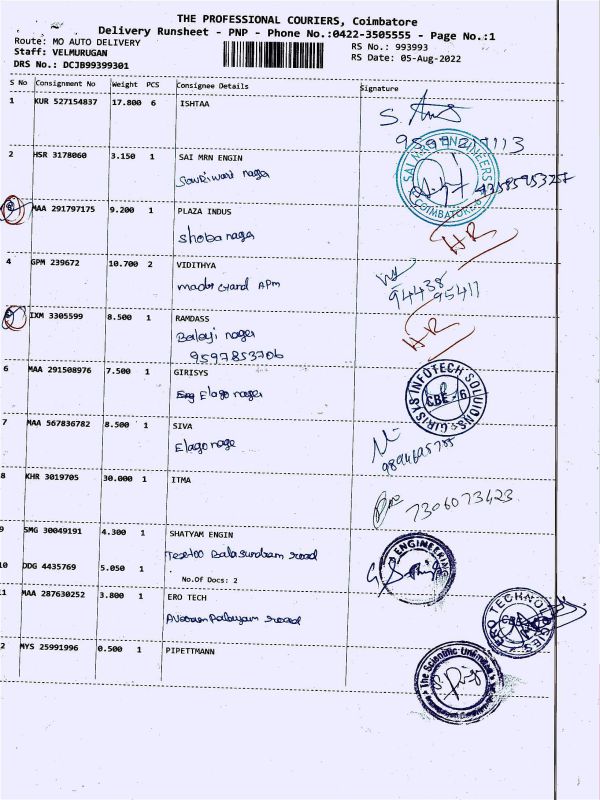 THE PROFESSIONAL COURIERS, Coimbatore
Delivery Runsheet - PNP - Phone No.:0422-3505555 - Page No.:1
Route: MO AUTO DELIVERY
RS No.: 993993
Staff: VELMURUGAN
RS Date: 05-Aug-2022
DRS No.: DCJB99399301
S No Consignment No Weight PCS Consignee Details Signature
1 KUR 527154837 17.800 6 ISHTAA
2 HSR 3178060 3.150 1 SAI MRN ENGIN
nagar
SAI ENGINEERS
COIMBATORE
MAA 291797175 9.200 1 PLAZA INDUS
Shoba nagar
HR
4 GPM 239672 10.700 2 VIDITHYA
Grand APM
94438
95411
IXM 3305599 8.500 1 RAMDASS
Balaji nagar
9597853706
HR
6 MAA 291508976 7.500 1 GIRISYS
Elago nagar
GIRISYS INFOTECH SOLUIONS
CBE - 6
7 MAA 567836782 8.500 1 SIVA
Elago nage
8 KHR 3019705 30.000 1 ITMA
7306073423
9 SMG 30049191 4.300 1 SHATYAM ENGIN
road
ENGINEERING
10 DDG 4435769 5.050 1
No.Of Docs: 2
11 MAA 287630252 3.800 1 ERO TECH
road
ERO TECHNOLOGIES
CBE
2 MYS 25991996 0.500 1 PIPETTMANN
The Scientific Unlimited